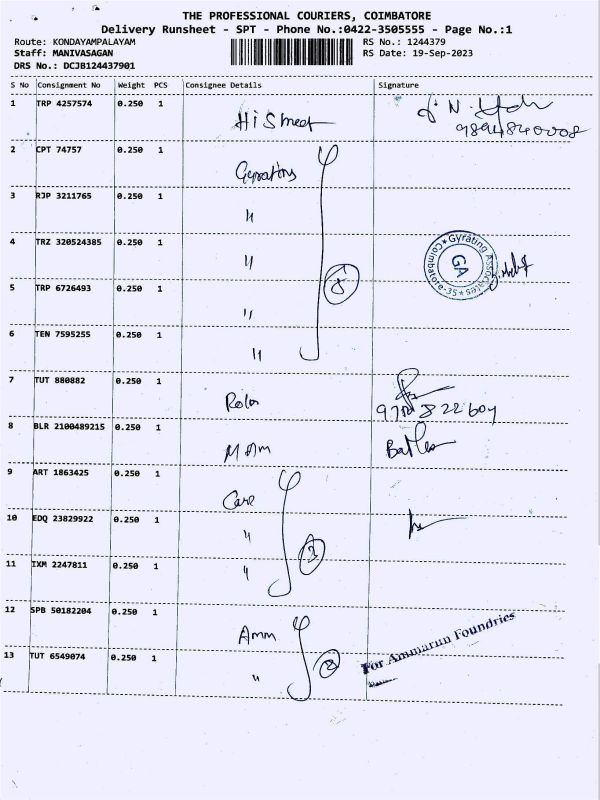 THE PROFESSIONAL COURIERS, COIMBATORE
Delivery Runsheet - SPT - Phone No.:0422-3505555 - Page No.:1
Route: KONDAYAMPALAYAM RS No.: 1244379
Staff: MANIVASAGAN RS Date: 19-Sep-2023
DRS No.: DCJB124437901
S No Consignment No Weight PCS Consignee Details Signature
1 TRP 4257574 0.250 1
2 CPT 74757 0.250 1
3 RJP 3211765 0.250 1 "
4 TRZ 320524385 0.250 1 "
Gyrating Associates Coimbatore-35 GA
5 TRP 6726493 0.250 1 "
6 TEN 7595255 0.250 1 "
7 TUT 880882 0.250 1
8 BLR 2100489215 0.250 1
9 ART 1863425 0.250 1 Care
10 EDQ 23829922 0.250 1 "
11 IXM 2247811 0.250 1 " 3
12 SPB 50182204 0.250 1 Amm
For Ammarun Foundries
13 TUT 6549074 0.250 1 " 2